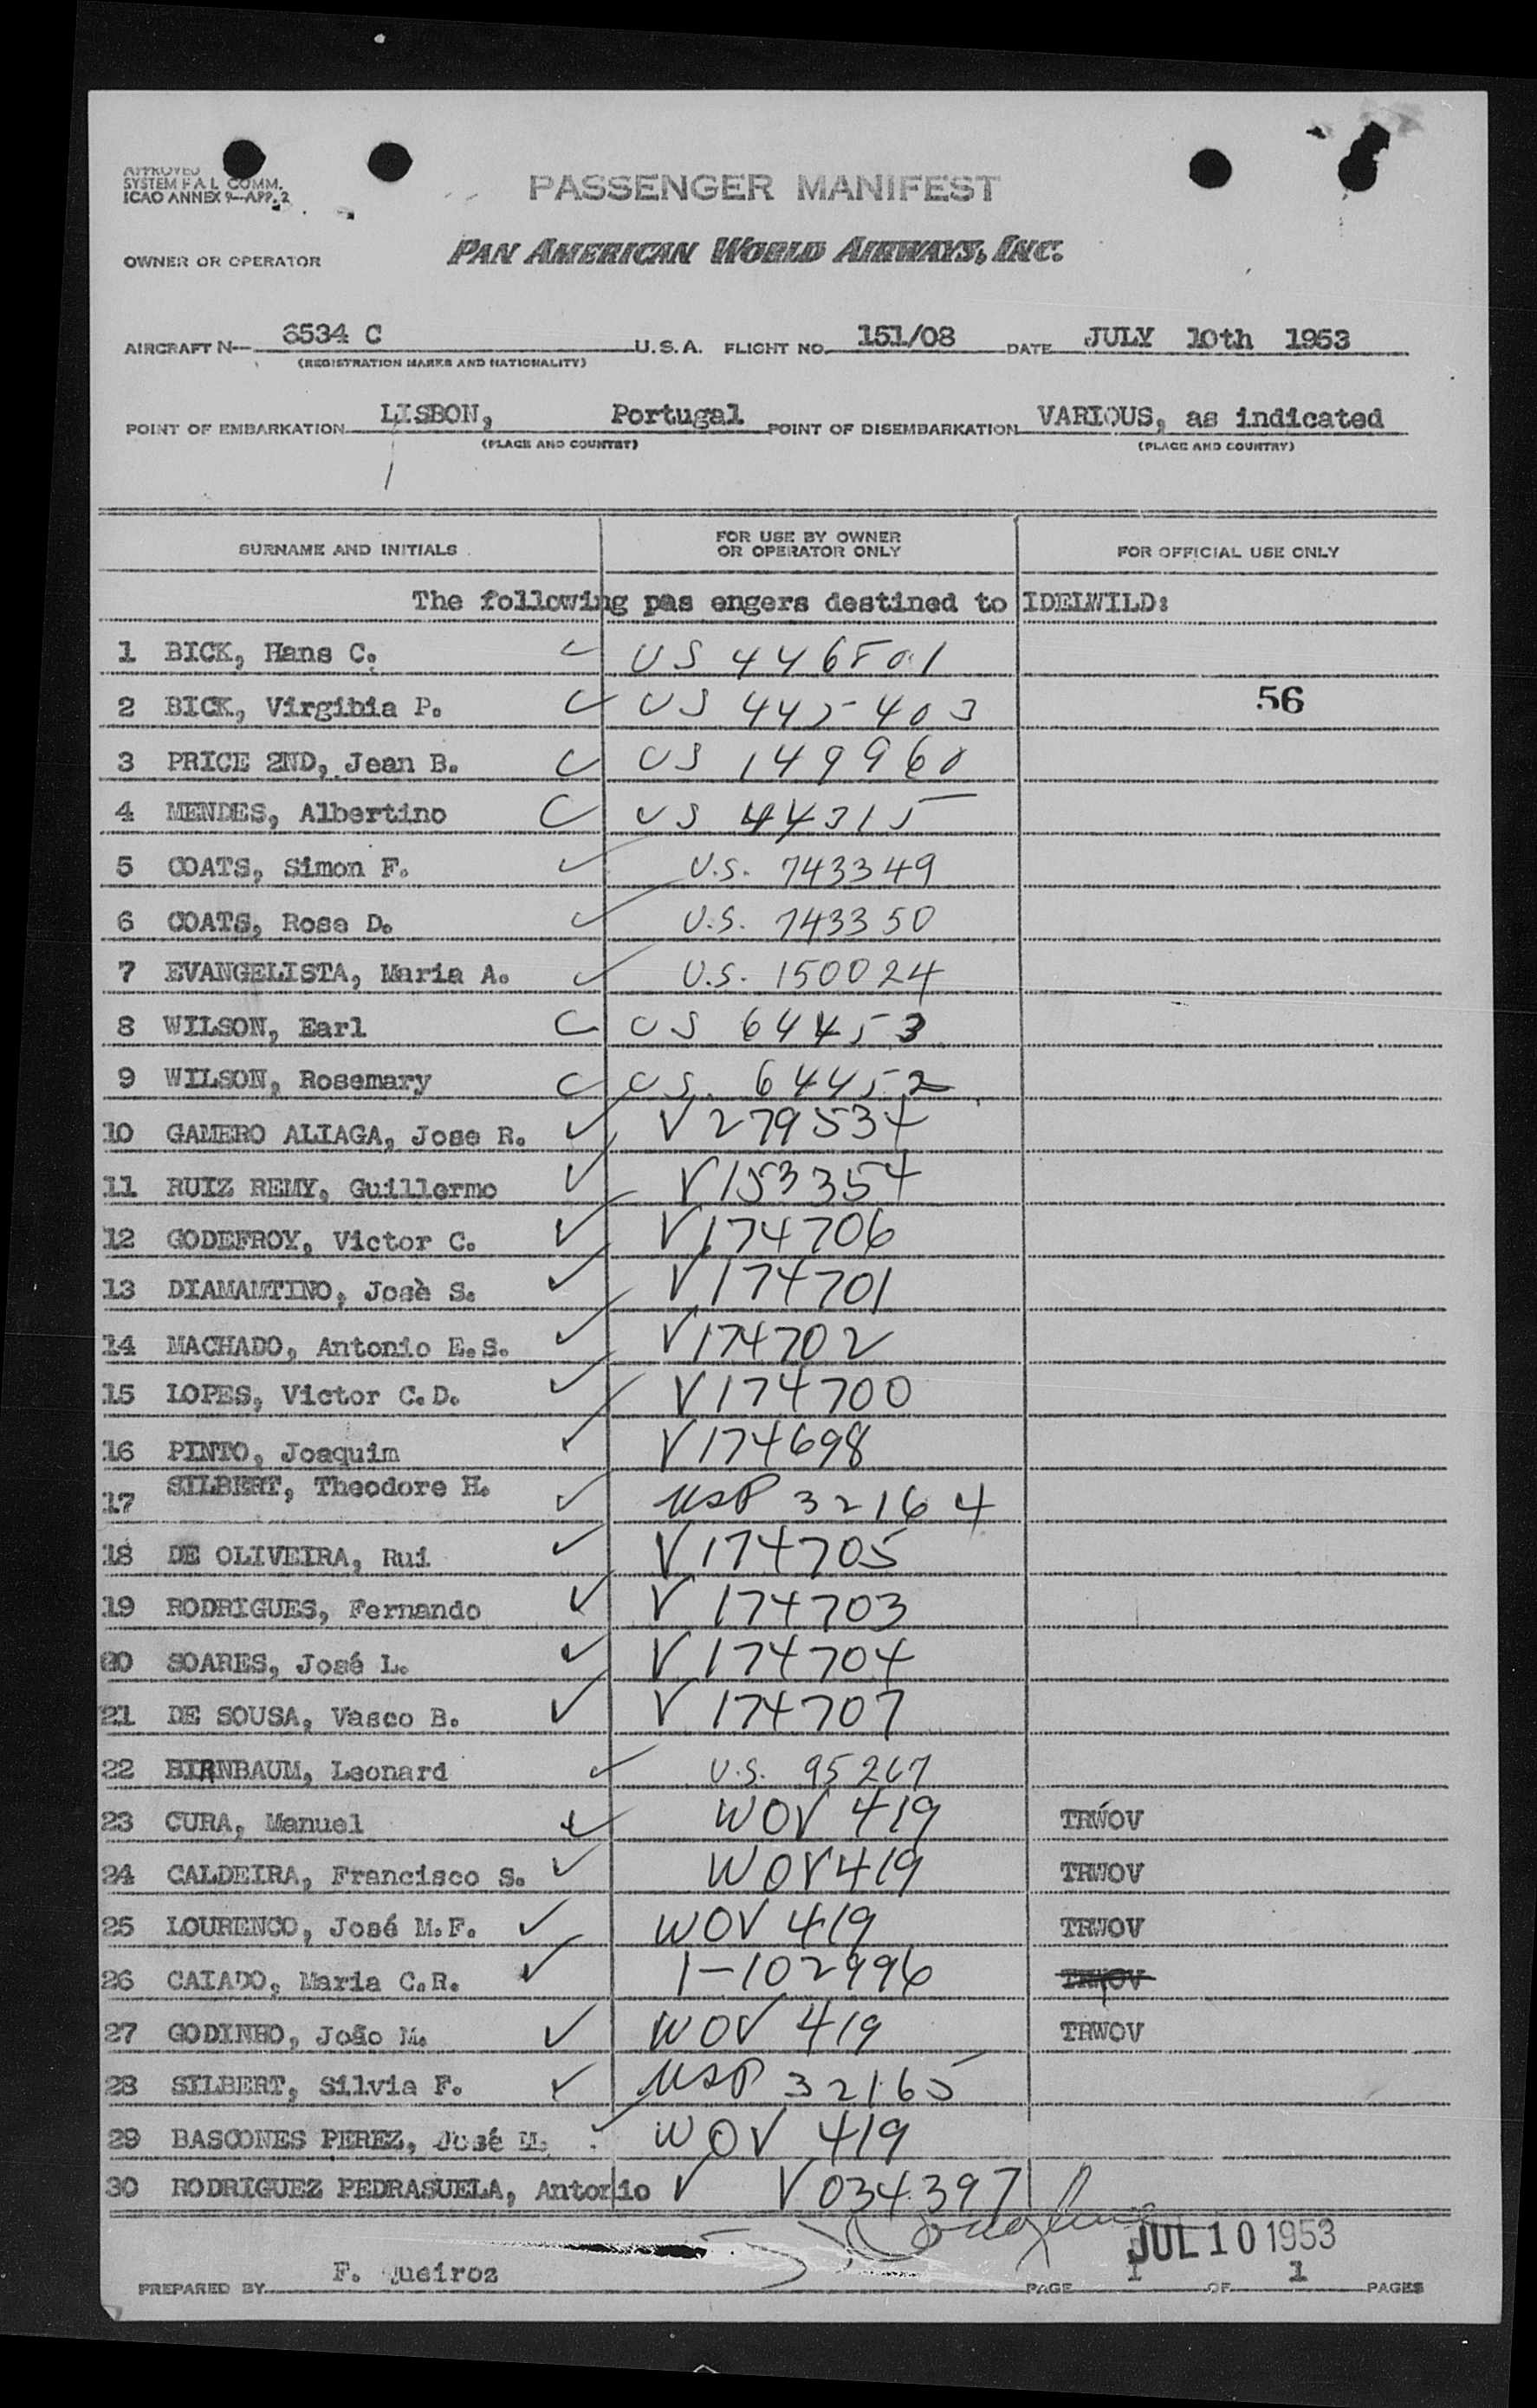 APPROVED
SYSTEM F A L COMM.
ICAO ANNEX 9—APP. 2
PASSENGER MANIFEST
OWNER OR OPERATOR PAN AMERICAN WORLD AIRWAYS, INC.
AIRCRAFT N— 6534 C U.S.A. FLIGHT NO. 151/08 DATE JULY 10th 1953
(REGISTRATION MARKS AND NATIONALITY)
POINT OF EMBARKATION LISBON, Portugal POINT OF DISEMBARKATION VARIOUS, as indicated
(PLACE AND COUNTRY) (PLACE AND COUNTRY)
SURNAME AND INITIALS FOR USE BY OWNER OR OPERATOR ONLY FOR OFFICIAL USE ONLY
The following pas engers destined to IDELWILD:
1 BICK, Hans C. US 446801
2 BICK, Virgibia P. US 445403 56
3 PRICE 2ND, Jean B. US 149960
4 MENDES, Albertino US 44315
5 COATS, Simon F. U.S. 743349
6 COATS, Rose D. U.S. 743350
7 EVANGELISTA, Maria A. U.S. 150024
8 WILSON, Earl US 64453
9 WILSON, Rosemary US. 64452
10 GAMERO ALIAGA, Jose R. V 279534
11 RUIZ REMY, Guillermo V153354
12 GODEFROY, Victor C. V174706
13 DIAMAMTINO, Josè S. V174701
14 MACHADO, Antonio E.S. V174702
15 LOPES, Victor C.D. V174700
16 PINTO, Joaquim V174698
17 SILBERT, Theodore H. USP 32164
18 DE OLIVEIRA, Rui V174705
19 RODRIGUES, Fernando V 174703
20 SOARES, José L. V 174704
21 DE SOUSA, Vasco B. V 174707
22 BIRNBAUM, Leonard U.S. 95267
23 CURA, Manuel WOV 419 TRWOV
24 CALDEIRA, Francisco S. WOV419 TRWOV
25 LOURENCO, José M.F. WOV 419 TRWOV
26 CAIADO, Maria C.R. 1-102996 TRWOV
27 GODINHO, João M. WOV 419 TRWOV
28 SILBERT, Silvia F. USP 32165
29 BASCONES PEREZ, José M. WOV 419
30 RODRIGUEZ PEDRASUELA, Antonio V034397
JUL 10 1953
PREPARED BY F. Queiroz PAGE 1 OF 1 PAGES